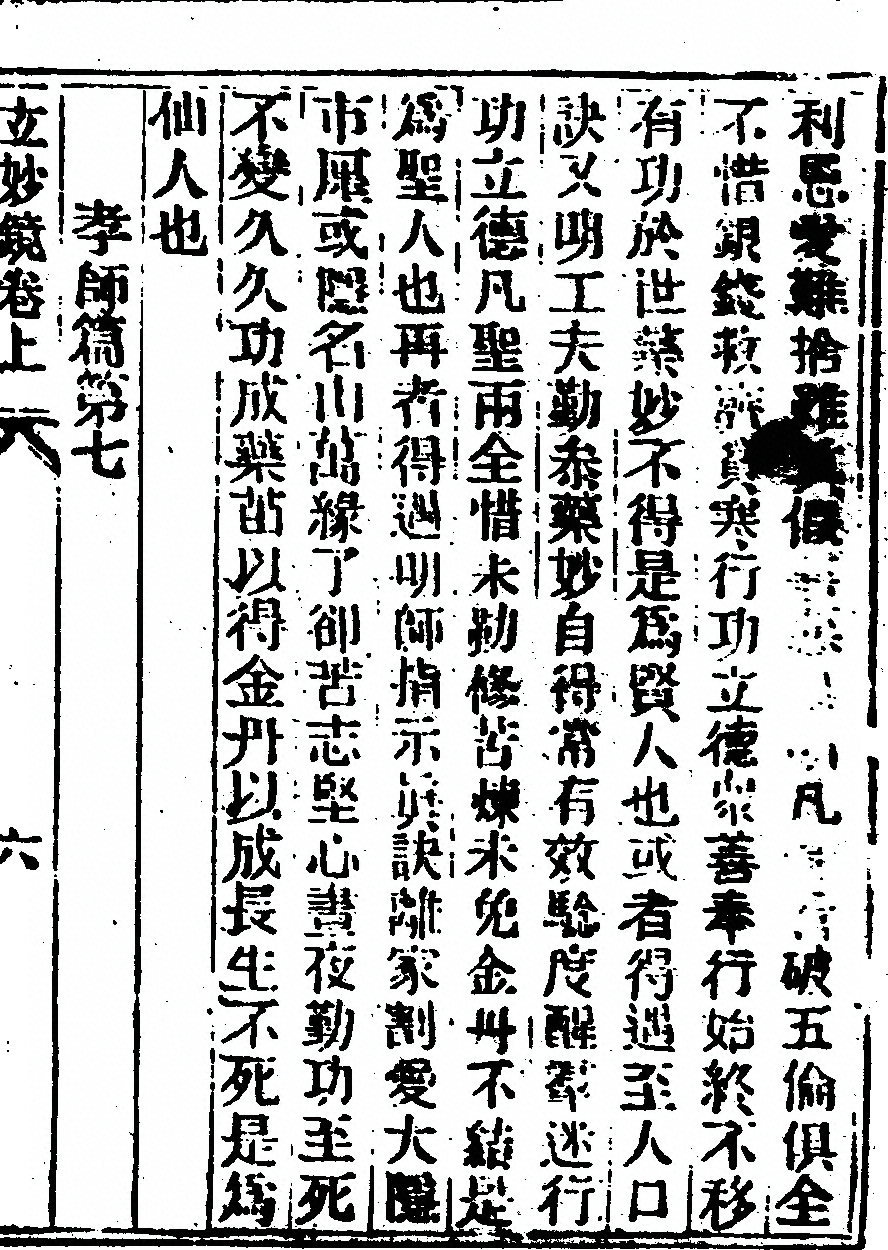 利恩愛難捨雖眞假凡破五倫俱全
不惜銀錢救濟貧寒行功立德衆善奉行始終不移
有功於世藥妙不得是爲賢人也或者得遇至人口
訣又明工夫勤叅藥妙自得常有效驗度醒羣迷行
功立德凡聖兩全惜未勤修苦煉未免金丹不結是
爲聖人也再者得遇明師指示眞訣離家割愛大隱
市廛或隱名山萬緣了卻苦志堅心晝夜勤功至死
不變久久功成藥苗以得金丹以成長生不死是爲
仙人也
孝師篇第七
立妙鏡卷上
六